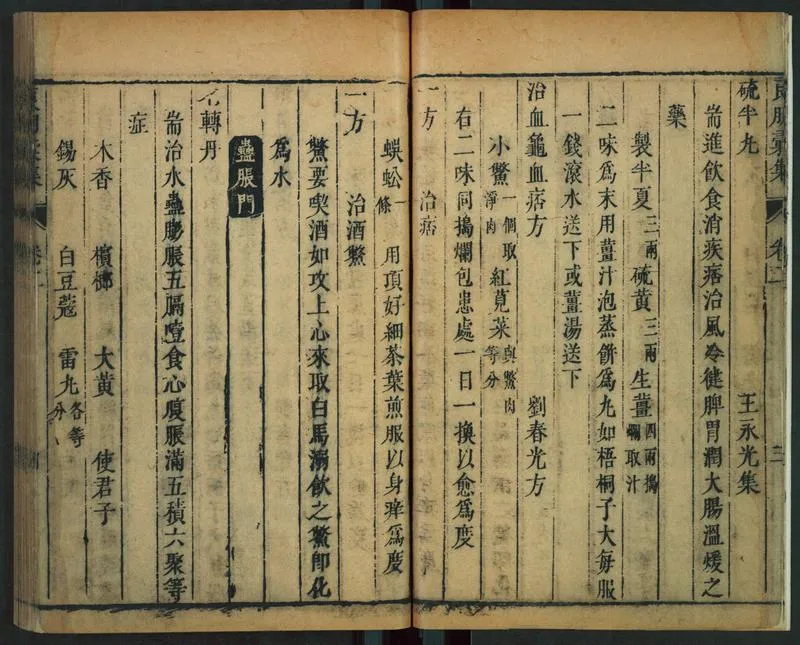 硫半丸 王永光集
耑進飲食消痰痞治風冷健脾胃潤大腸溫煖之
藥
製半夏三兩 硫黃三兩 生薑四兩搗爛取汁
二味爲末用薑汁泡蒸餅爲丸如梧桐子大每服
一錢滾水送下或薑湯送下
治血龜血痞方 劉春光方
小鱉一個取淨肉 紅莧菜與鱉肉等分
右二味同搗爛包患處一日一換以愈爲度
一方 治痞
蜈蚣一條 用頂好細茶葉煎服以身痒爲度
一方 治酒鱉
鱉要喫酒如攻上心來取白馬溺飲之鱉即化
爲水
蠱脹門
轉丹
耑治水蠱膨脹五膈噎食心腹脹滿五積六聚等
症
木香 檳榔 大黃 使君子
錫灰 白豆蔻 雷丸各等分
卷二
三